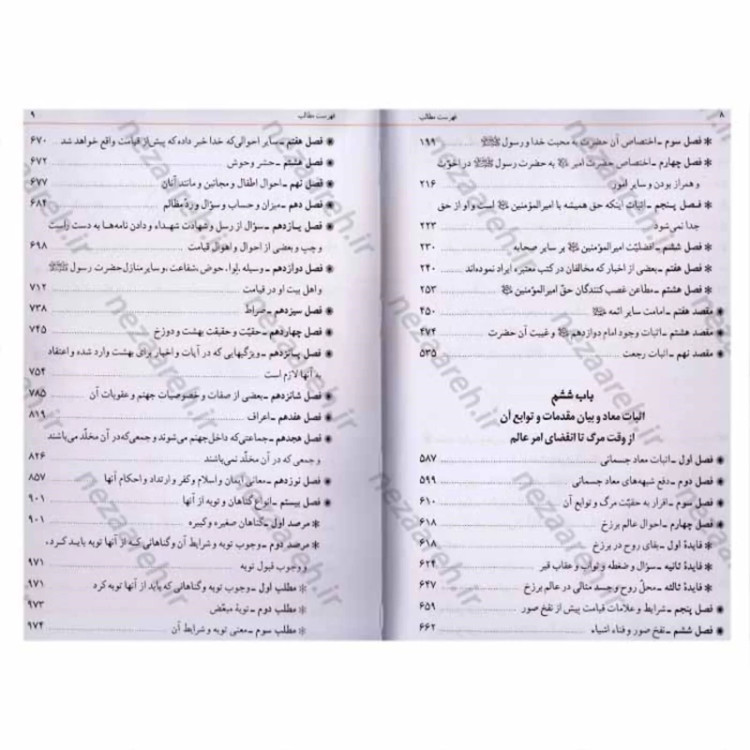 ۸ فهرست مطالب
✻ فصل سوم ـ اختصاص آن حضرت به محبت خدا و رسول ﷺ ۱۹۹
فصل چهارم ـ اختصاص حضرت امیر ﷺ به حضرت رسول ﷺ در اخوّت
و همراز بودن و سایر امور ۲۱۶
✻ فصل پنجم ـ اثبات اینکه حق همیشه با امیرالمؤمنین ﷺ است و او از حق
جدا نمی‌شود ۲۲۳
✻ فصل ششم ـ افضلیّت امیرالمؤمنین ﷺ بر سایر صحابه ۲۳۰
✻ فصل هفتم ـ بعضی از اخبار که مخالفان در کتب معتبره ایراد نموده‌اند ۲۴۰
✻ فصل هشتم ـ مطاعن غصب کنندگان حقّ امیرالمؤمنین ﷺ ۲۹۳
◉ مقصد هفتم ـ امامت سایر ائمه ﷺ ۴۵۰
◉ مقصد هشتم ـ اثبات وجود امام دوازدهم ﷺ و غیبت آن حضرت ۴۷۴
◉ مقصد نهم ـ اثبات رجعت ۵۳۵
باب ششم
اثبات معاد و بیان مقدمات و توابع آن
از وقت مرگ تا انقضای امر عالم
◉ فصل اول ـ اثبات معاد جسمانی ۵۸۷
◉ فصل دوم ـ دفع شبهه‌های معاد جسمانی ۵۹۹
◉ فصل سوم ـ اقرار به حقیّت مرگ و توابع آن ۶۱۰
◉ فصل چهارم ـ احوال عالم برزخ ۶۱۸
✻ فایدهٔ اول ـ بقای روح در برزخ ۶۱۸
✻ فایدهٔ ثانیه ـ سؤال و ضغطه و ثواب و عقاب قبر ۶۲۴
✻ فایدهٔ ثالثه ـ محلّ روح و جسد مثالی در عالم برزخ ۶۴۷
◉ فصل پنجم ـ شرایط و علامات قیامت پیش از نفخ صور ۶۵۹
◉ فصل ششم ـ نفخ صور و فناء اشیاء ۶۶۲
فهرست مطالب ۹
◉ فصل هفتم ـ سایر احوالی که خدا خبر داده که پیش از قیامت واقع خواهد شد ۶۷۰
◉ فصل هشتم ـ حشر وحوش ۶۷۲
◉ فصل نهم ـ احوال اطفال و مجانین و مانند آنان ۶۷۷
◉ فصل دهم ـ میزان و حساب و سؤال و ردّ مظالم ۶۸۴
◉ فصل یازدهم ـ سؤال از رسل و شهادت شهداء و دادن نامه‌ها به دست راست
و چپ و بعضی از احوال و اهوال قیامت ۶۹۸
◉ فصل دوازدهم ـ وسیله، لوا، حوض، شفاعت، و سایر منازل حضرت رسول ﷺ
و اهل بیت او در قیامت ۷۱۲
◉ فصل سیزدهم ـ صراط ۷۳۸
◉ فصل چهاردهم ـ حقیّت و حقیقت بهشت و دوزخ ۷۴۵
◉ فصل پانزدهم ـ ویژگیهایی که در آیات و اخبار برای بهشت وارد شده و اعتقاد
به آنها لازم است ۷۵۴
◉ فصل شانزدهم ـ بعضی از صفات و خصوصیات جهنم و عقوبات آن ۷۸۵
◉ فصل هفدهم ـ اعراف ۸۱۹
◉ فصل هجدهم ـ جماعتی که داخل جهنم می‌شوند و جمعی که در آن مخلّد می‌باشند
و جمعی که در آن مخلّد نمی‌باشند ۸۲۶
◉ فصل نوزدهم ـ معانی ایمان و اسلام و کفر و ارتداد و احکام آنها ۸۵۷
◉ فصل بیستم ـ انواع گناهان و توبه از آنها ۹۰۱
✻ مرصد اول ـ گناهان صغیره و کبیره ۹۰۱
✻ مرصد دوم ـ وجوب توبه و شرایط آن و گناهانی که از آنها توبه باید کرد،
و وجوب قبول توبه ۹۷۱
✻ مطلب اول ـ وجوب توبه و گناهانی که باید از آنها توبه کرد ۹۷۱
✻ مطلب دوم ـ توبهٔ مبعّض ۹۷۳
✻ مطلب سوم ـ معنی توبه و شرایط آن ۹۷۴
nezaareh.ir